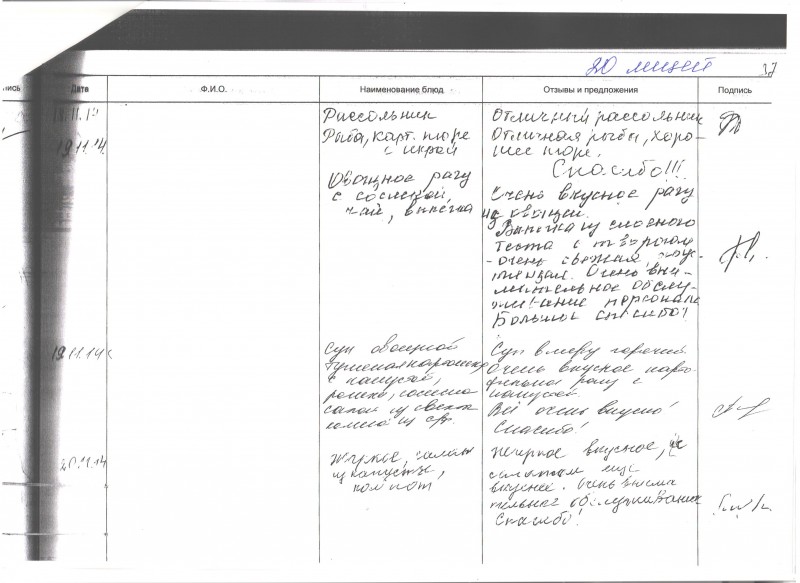 20 лицей
37
ись Дата Ф.И.О. Наименование блюд Отзывы и предложения Подпись
Рассольник
Рыба, карт. пюре
с икрой
Отличный рассольник
Отличная рыба, хоро-
шее пюре.
Спасибо!!!
19.11.14
Овощное рагу
с сосиской,
чай, выпечка
Очень вкусное рагу
из овощей.
Выпечка из слоеного
теста с творогом
- очень свежая,
Очень вни-
мательное обслу-
живание персонала
Большое спасибо!
19.11.14
Суп овощной
Тушеная картошка
с капустой,
салат из свеклы
Суп в меру горячий
Очень вкусное карто-
фельное рагу с
капустой.
Всё очень вкусно!
Спасибо!
20.11.14
Жаркое, салат
из капусты,
компот
Жаркое вкусное,
салатик еще
вкуснее. Очень внима
тельное обслуживание
Спасибо!